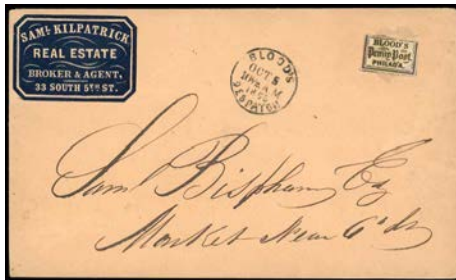 SAML. KILPATRICK
REAL ESTATE
BROKER & AGENT,
33 SOUTH 5TH ST.
BLOOD'S
OCT 5
A.M
DESPATCH
BLOOD'S
Penny Post
PHILAD'A
Saml Bispham Esq
Market Near 6th